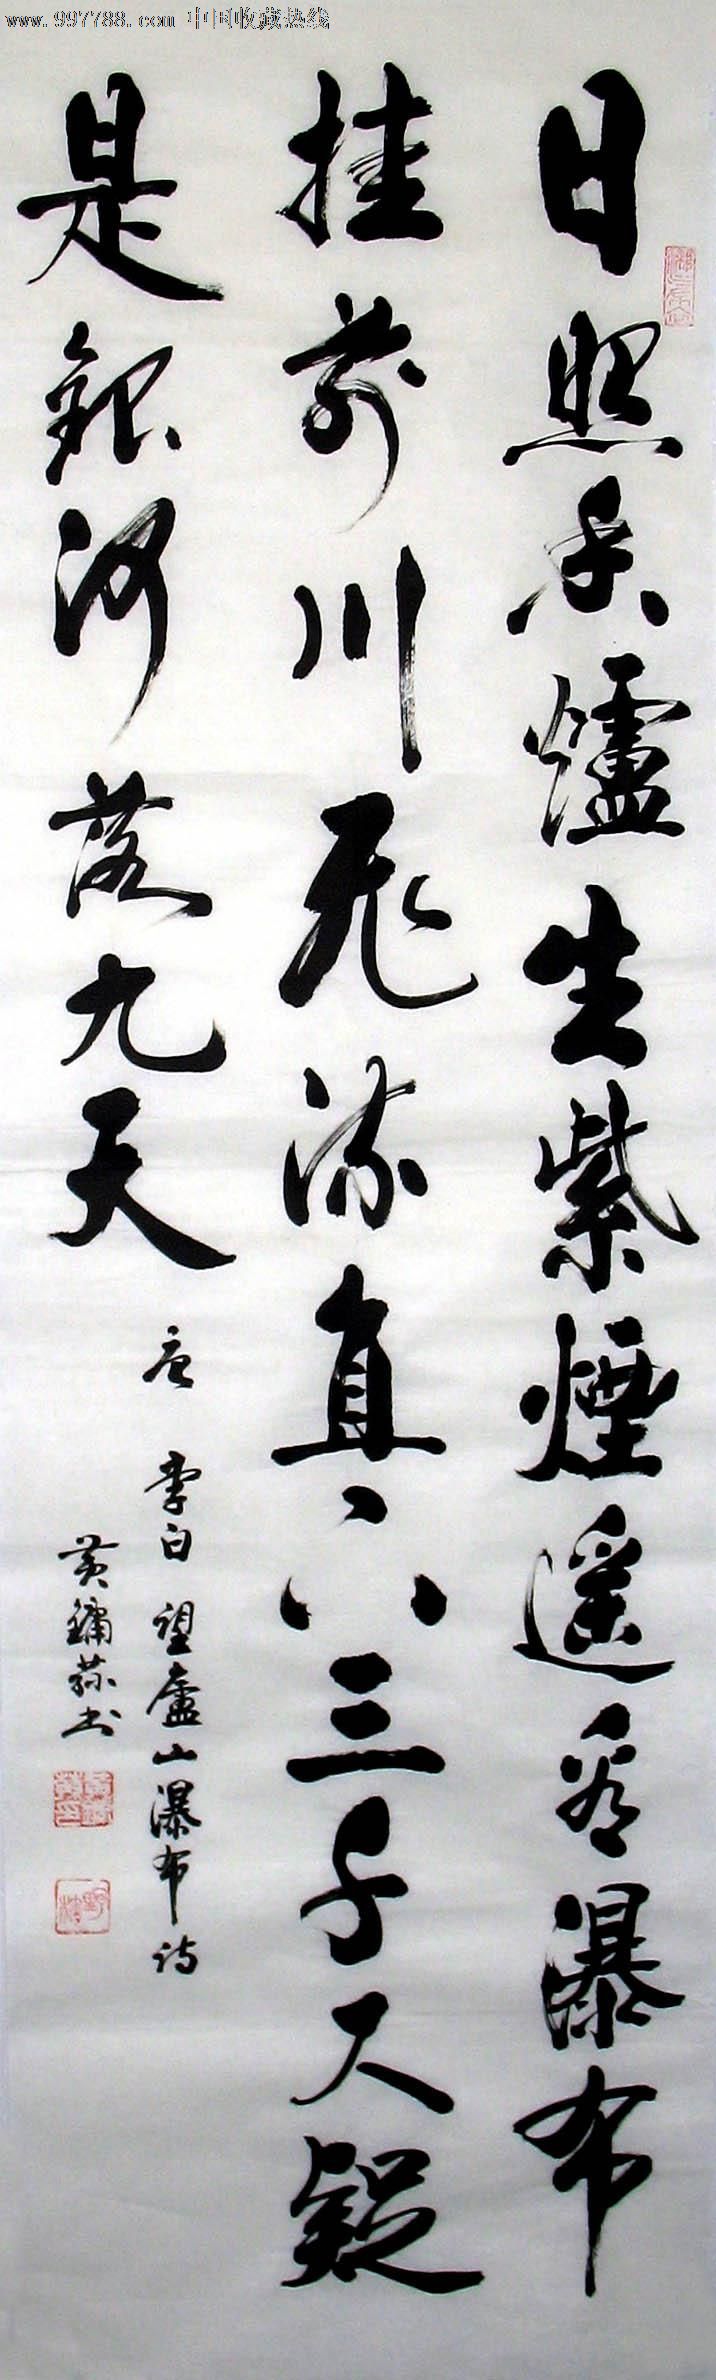 www.997788.com 中国收藏热线
日照香爐生紫煙遥看瀑布
挂前川飛流直下三千尺疑
是銀河落九天
唐 李白 望廬山瀑布詩
黃鏞蓀书